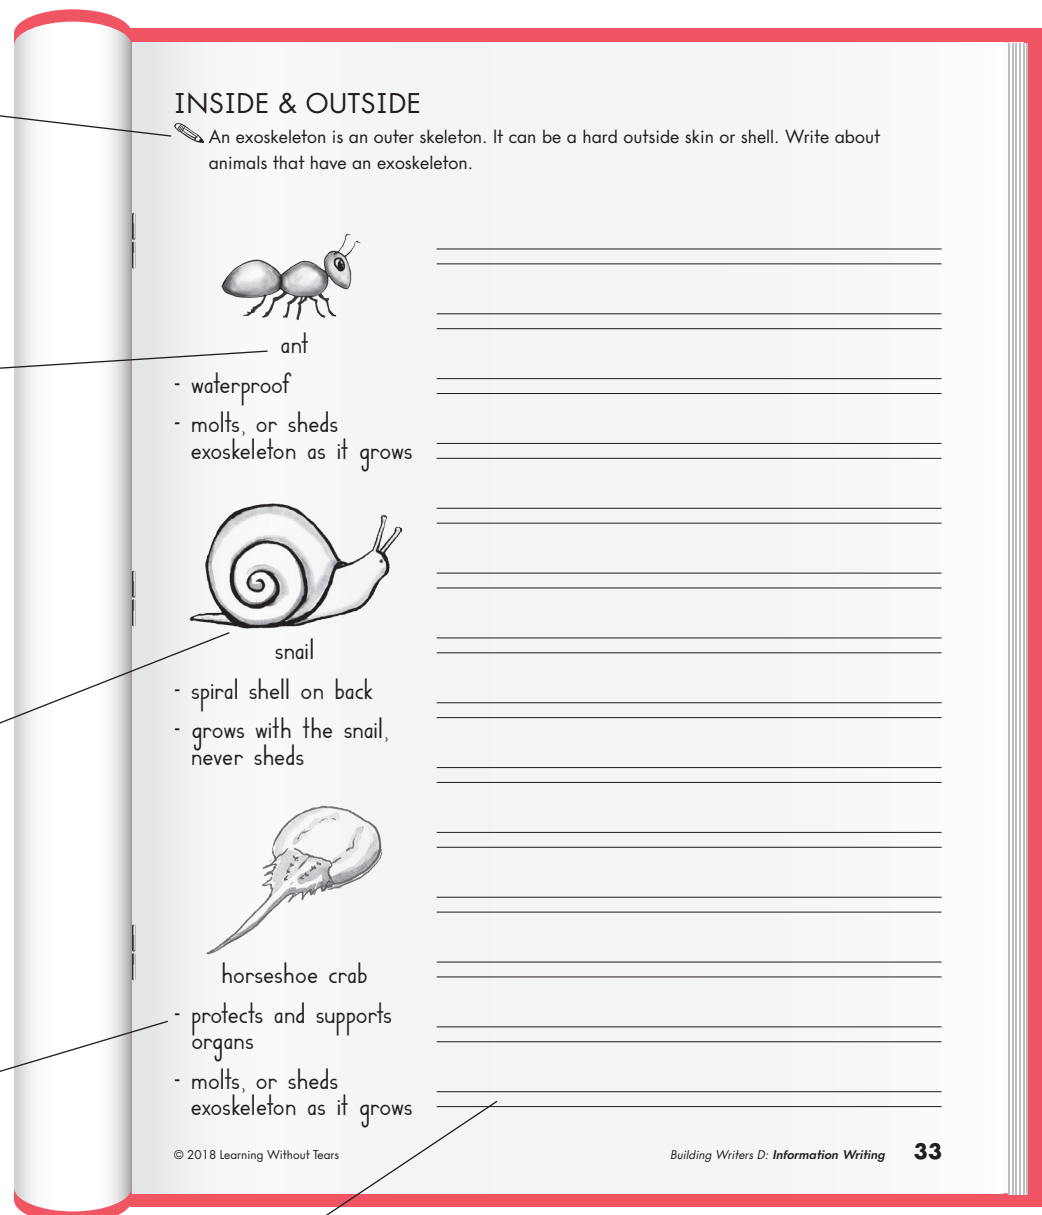 INSIDE & OUTSIDE
An exoskeleton is an outer skeleton. It can be a hard outside skin or shell. Write about
animals that have an exoskeleton.
ant
- waterproof
- molts, or sheds
exoskeleton as it grows
snail
- spiral shell on back
- grows with the snail,
never sheds
horseshoe crab
- protects and supports
organs
- molts, or sheds
exoskeleton as it grows
© 2018 Learning Without Tears
Building Writers D: Information Writing 33